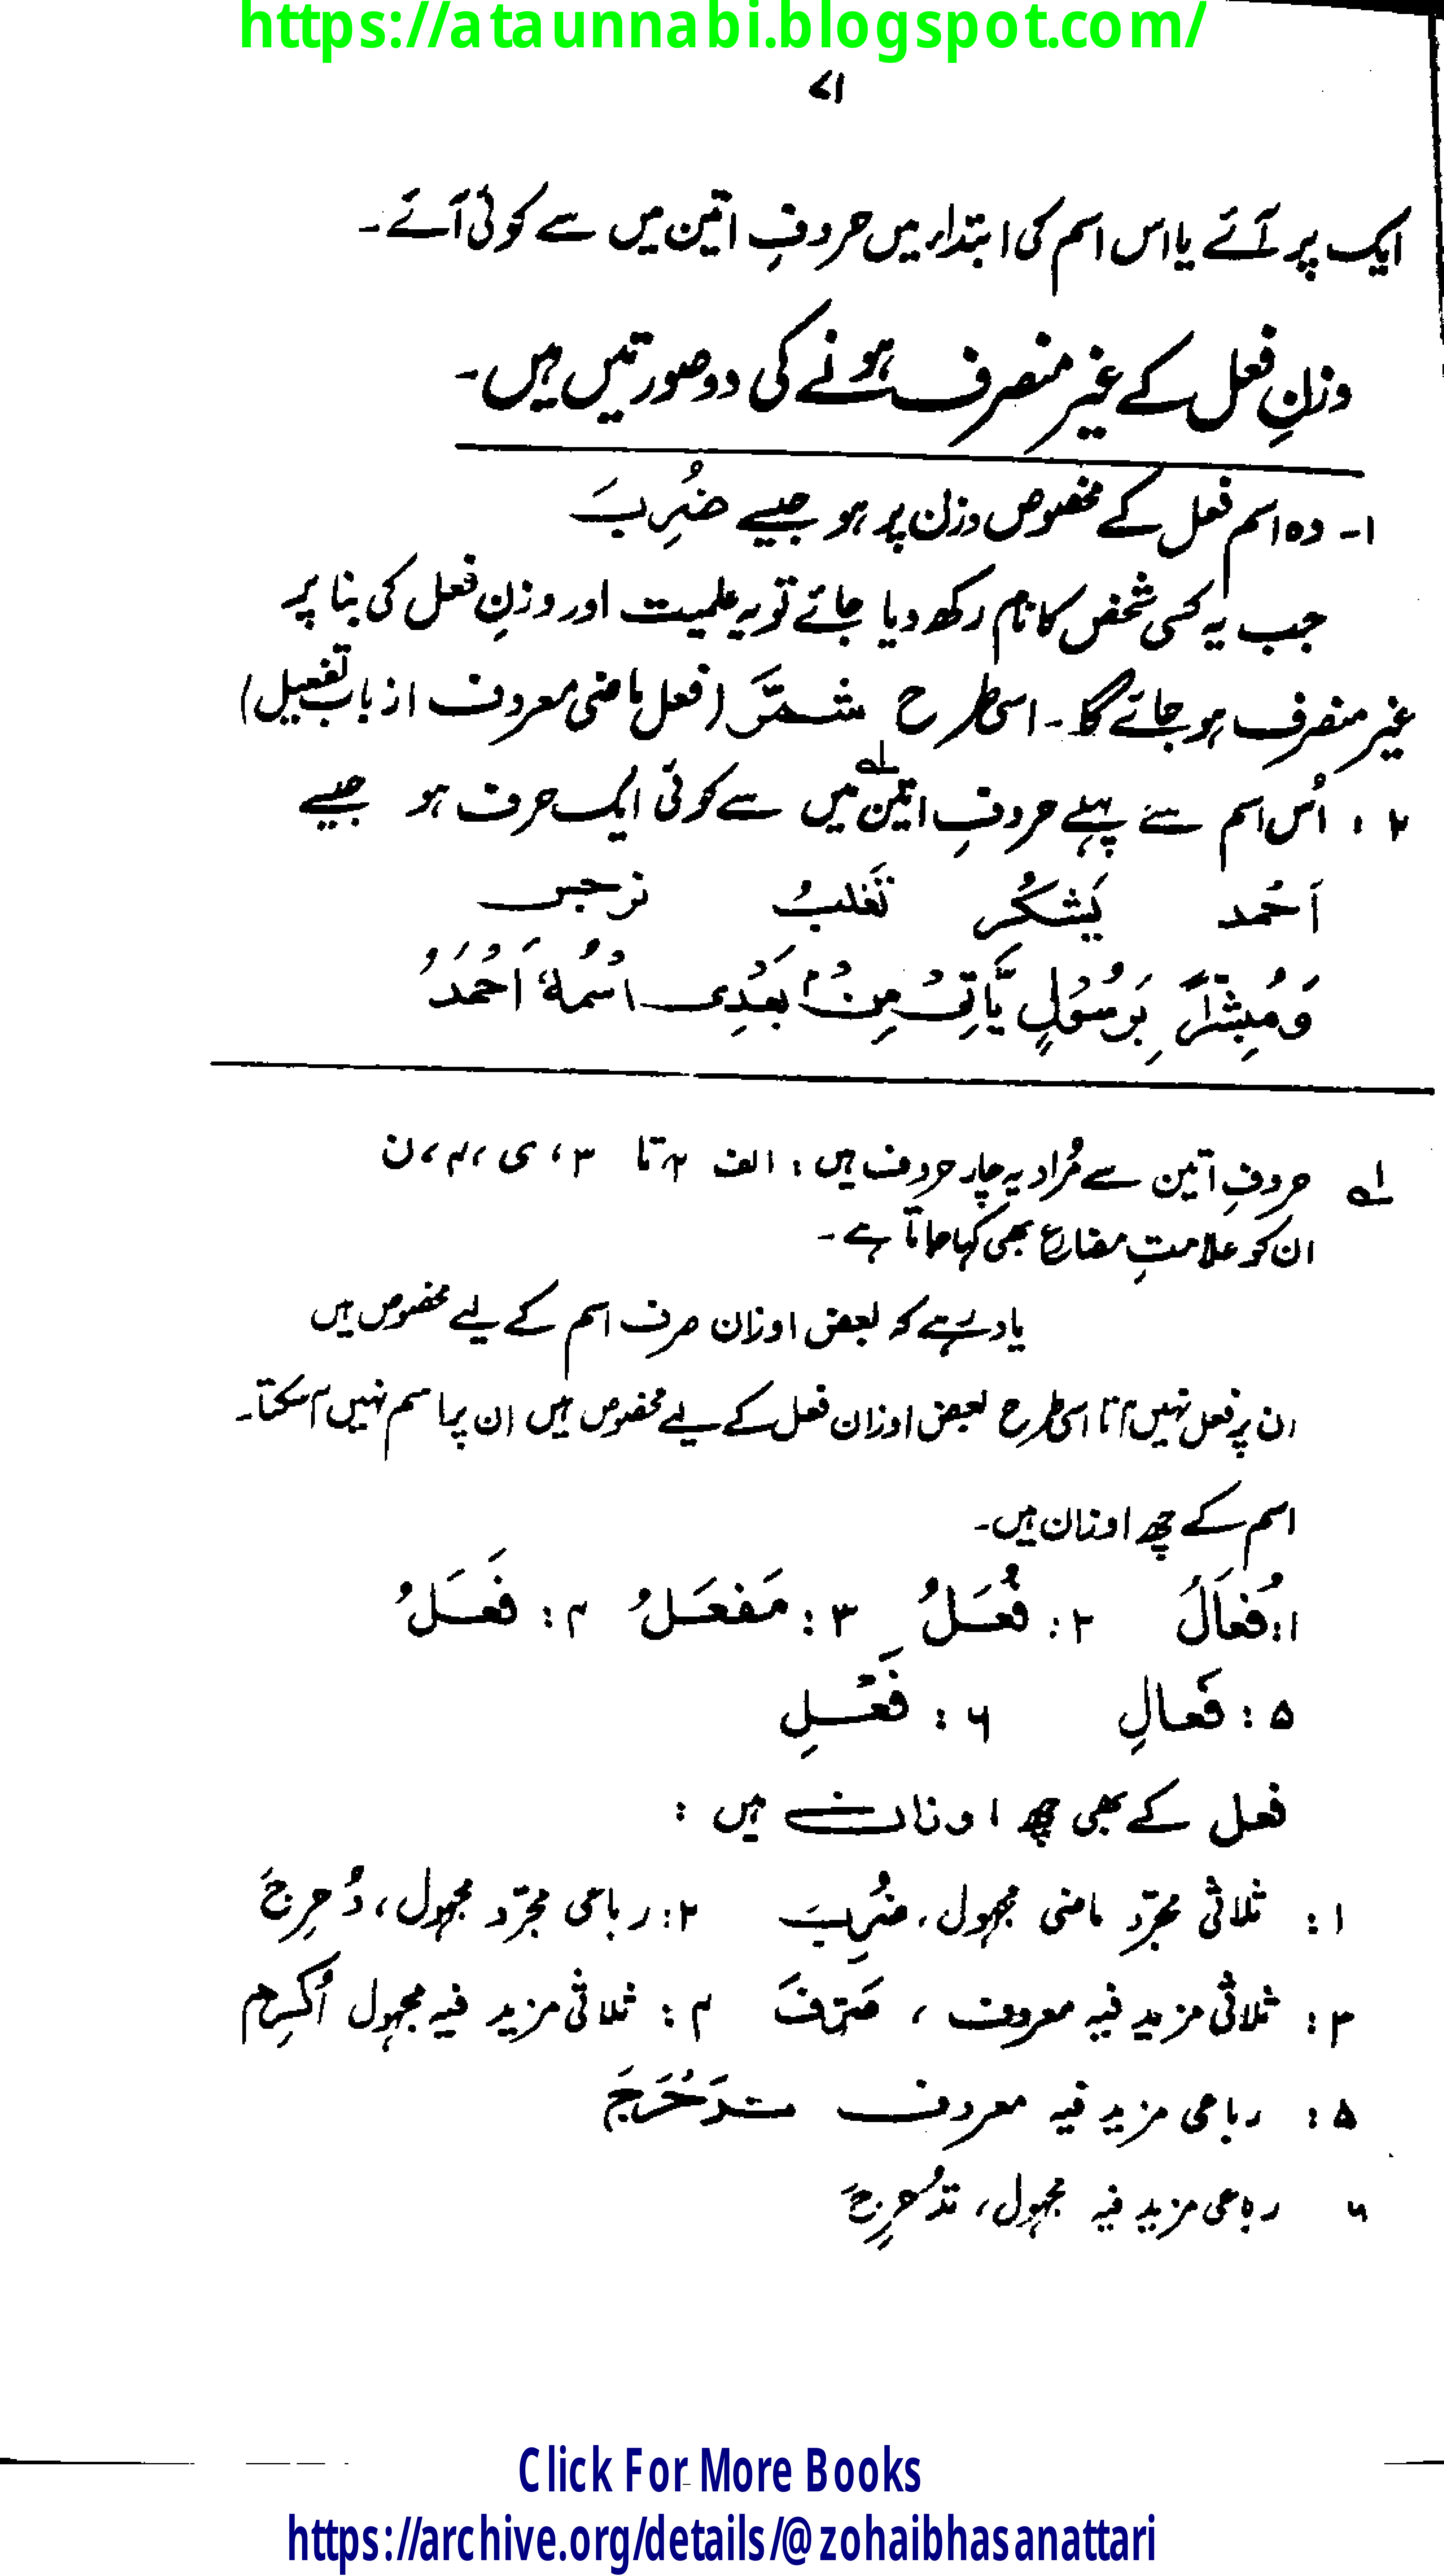 https://ataunnabi.blogspot.com/
۷۱
ایک پر آئے یا اس اسم کی ابتداء میں حروفِ اتین میں سے کوئی آئے۔
وزنِ فعل کے غیر منصرف ہونے کی دو صورتیں ہیں۔
۱۔ وہ اسم فعل کے مخصوص وزن پر ہو جیسے ضُرِبَ
جب یہ کسی شخص کا نام رکھ دیا جائے تو یہ علمیت اور وزنِ فعل کی بنا پر
غیر منصرف ہو جائے گا۔ اسی طرح شمَّرَ (فعل ماضی معروف از باب تفعیل)
۲ : اُس اسم سے پہلے حروفِ اتین لہ میں سے کوئی ایک حرف ہو جیسے
اَحْمد یَشکُر تَغلبُ نرجس
وَمُبَشِّرًا بِرَسُوْلٍ یَّاْتِیْ مِنْۢ بَعْدِی اسْمُهٗ اَحْمَدُ
لہ حروفِ اتین سے مُراد یہ چار حروف ہیں : الف ۲، تا ۳، ی ،۴، ن
ان کو علامتِ مضارع بھی کہا جاتا ہے۔
یاد رہے کہ بعض اوزان صرف اسم کے لیے مخصوص ہیں
ان پر فعل نہیں آتا اسی طرح بعض اوزان فعل کے لیے مخصوص ہیں ان پر اسم نہیں آ سکتا۔
اسم کے چھ اوزان ہیں۔
۱: فُعَالَ ۲: فُعَلُ ۳: مَفعَلُ ۴: فَعَلُ
۵: فَعالِ ۶: فَعْلِ
فعل کے بھی چھ اوزان ہیں :
۱: ثلاثی مجرّد ماضی مجہول، ضُرِبَ ۲: رباعی مجرّد مجہول، دُحرِجَ
۳: ثلاثی مزید فیہ معروف ، صَرّفَ ۴: ثلاثی مزید فیہ مجہول اُکرِم
۵: رباعی مزید فیہ معروف تدَحْرَجَ
۶ رباعی مزید فیہ مجہول، تدُحرِجَ
Click For More Books
https://archive.org/details/@zohaibhasanattari